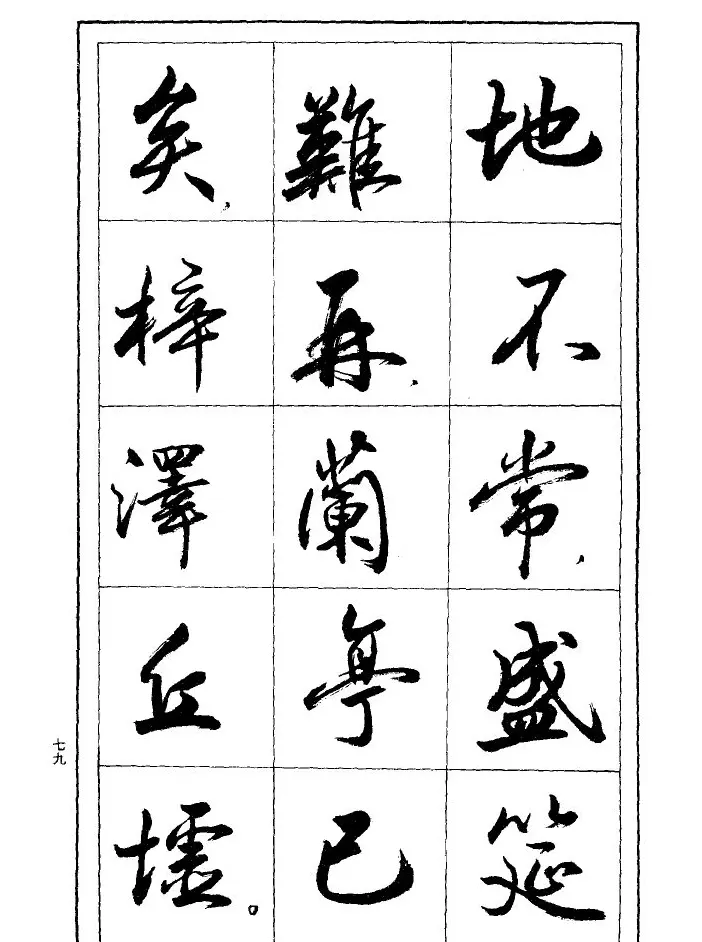 地不常，盛筵
難再，蘭亭已
矣，梓澤丘墟。
七九